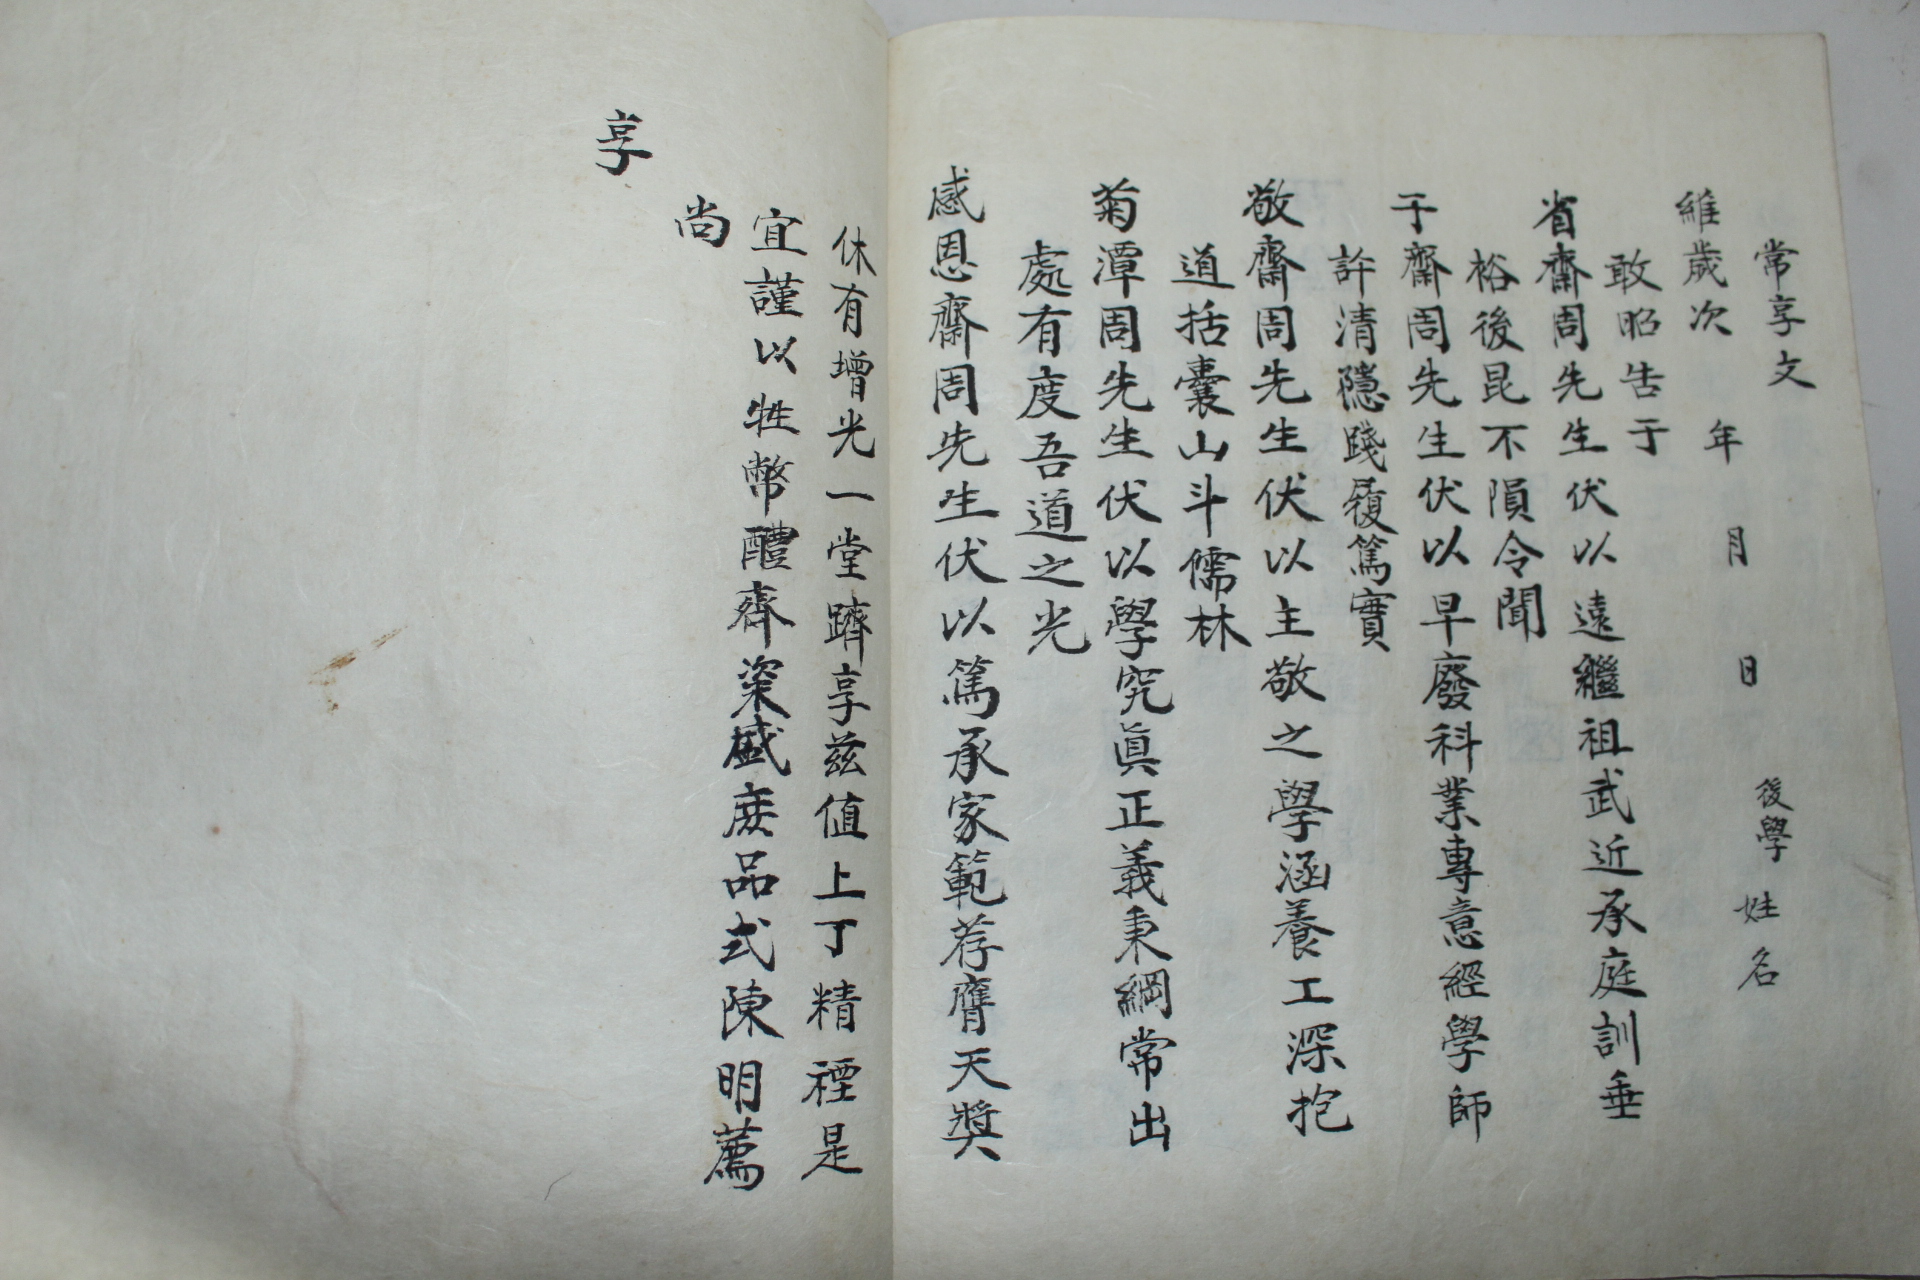 常享文
維歲次 年 月 日 後學 姓名
敢昭告于
省齋周先生伏以遠繼祖武近承庭訓垂
裕後昆不隕令聞
于齋周先生伏以早廢科業專意經學師
許清隱踐履篤實
敬齋周先生伏以主敬之學涵養工深抱
道括囊山斗儒林
菊潭周先生伏以學究眞正義秉綱常出
處有度吾道之光
感恩齋周先生伏以篤承家範荐膺天奬
休有增光一堂躋享茲值上丁精禋是
宜謹以牲幣醴齊粢盛庶品式陳明薦
尚
享